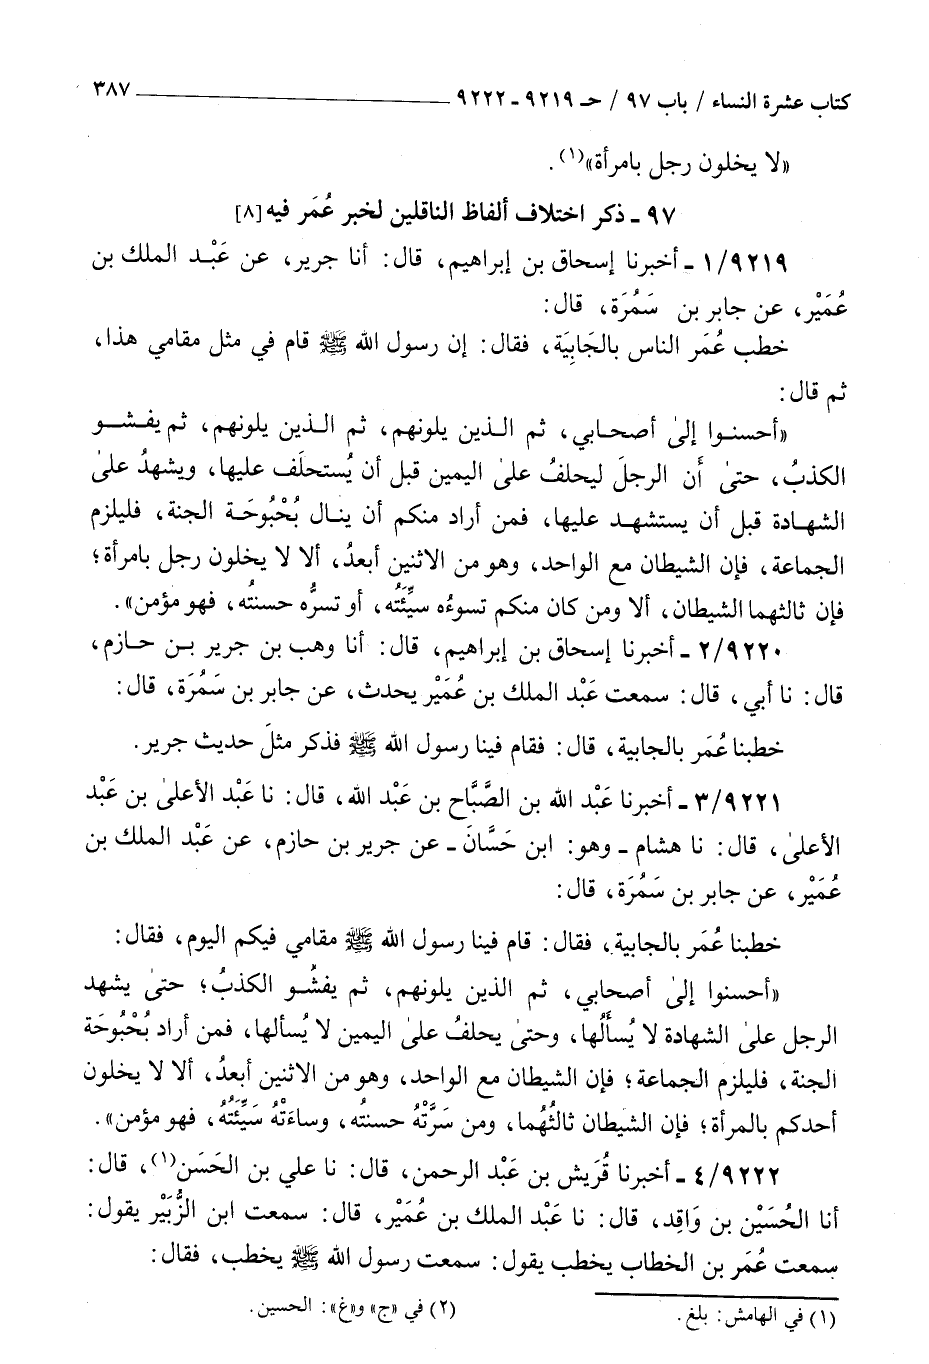 كتاب عشرة النساء / باب ٩٧ / حـ ٩٢١٩ - ٩٢٢٢ ٣٨٧
«لا يخلون رجل بامرأة»(١).
٩٧ - ذكر اختلاف ألفاظ الناقلين لخبر عُمَر فيه [٨]
١/٩٢١٩ - أخبرنا إسحاق بن إبراهيم، قال: أنا جرير، عن عَبْد الملك بن
عُمَيْر، عن جابر بن سَمُرَة، قال:
خطب عُمَر الناس بالجَابِيَة، فقال: إن رسول الله ﷺ قام في مثل مقامي هذا،
ثم قال:
«أحسنوا إلىٰ أصحابي، ثم الذين يلونهم، ثم الذين يلونهم، ثم يفشو
الكذبُ، حتىٰ أَن الرجلَ ليحلفُ علىٰ اليمين قبل أن يُستحلَف عليها، ويشهدُ علىٰ
الشهادة قبل أن يستشهد عليها، فمن أراد منكم أن ينال بُحْبُوحَة الجنة، فليلزم
الجماعة، فإن الشيطان مع الواحد، وهو من الاثنين أبعدُ، ألا لا يخلون رجل بامرأة؛
فإن ثالثهما الشيطان، ألا ومن كان منكم تسوءُه سيِّئَتُه، أو تسرُّه حسنتُه، فهو مؤمن».
٢/٩٢٢٠ - أخبرنا إسحاق بن إبراهيم، قال: أنا وهب بن جرير بن حازم،
قال: نا أبي، قال: سمعت عَبْد الملك بن عُمَيْر يحدث، عن جابر بن سَمُرَة، قال:
خطبنا عُمَر بالجابية، قال: فقام فينا رسول الله ﷺ فذكر مثلَ حديث جرير.
٣/٩٢٢١ - أخبرنا عَبْد الله بن الصَّبَّاح بن عَبْد الله، قال: نا عَبْد الأعلىٰ بن عَبْد
الأعلىٰ، قال: نا هشام - وهو: ابن حَسَّانَ - عن جرير بن حازم، عن عَبْد الملك بن
عُمَيْر، عن جابر بن سَمُرَة، قال:
خطبنا عُمَر بالجابية، فقال: قام فينا رسول الله ﷺ مقامي فيكم اليوم، فقال:
«أحسنوا إلىٰ أصحابي، ثم الذين يلونهم، ثم يفشُو الكذبُ؛ حتىٰ يشهد
الرجل علىٰ الشهادة لا يُسأَلُها، وحتىٰ يحلفُ علىٰ اليمين لا يُسألها، فمن أراد بُحْبُوحَة
الجنة، فليلزم الجماعة؛ فإن الشيطان مع الواحد، وهو من الاثنين أبعدُ، ألا لا يخلون
أحدكم بالمرأة؛ فإن الشيطان ثالثُهُما، ومن سَرَّتْهُ حسنتُه، وساءَتْهُ سَيِّئَتُه، فهو مؤمن».
٤/٩٢٢٢ - أخبرنا قُرَيش بن عَبْد الرحمن، قال: نا علي بن الحَسَن(١)، قال:
أنا الحُسَيْن بن وَاقِد، قال: نا عَبْد الملك بن عُمَيْر، قال: سمعت ابن الزُّبَيْر يقول:
سمعت عُمَر بن الخطاب يخطب يقول: سمعت رسول الله ﷺ يخطب، فقال:
(١) في الهامش: بلغ. (٢) في «ج» و«غ»: الحسين.